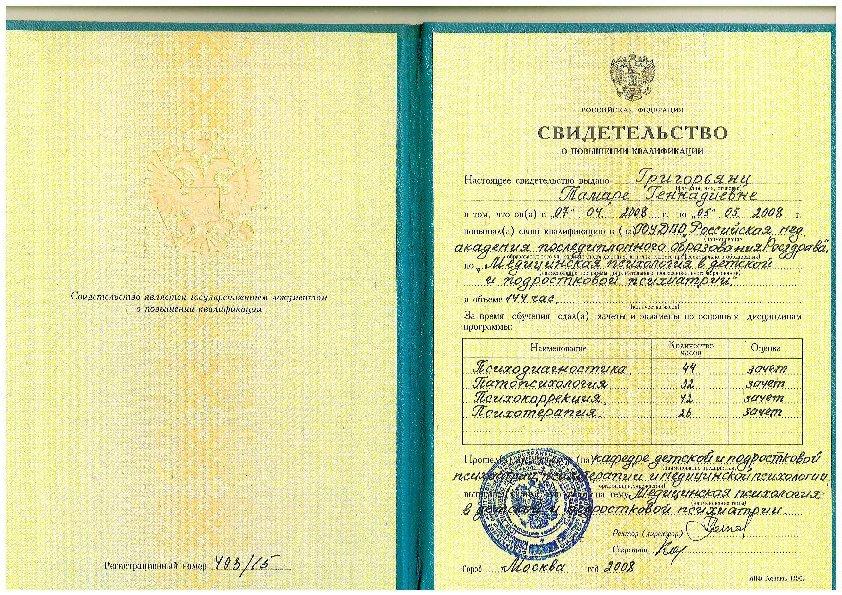 Свидетельство является государственным документом
о повышении квалификации
Регистрационный номер 493/15
РОССИЙСКАЯ ФЕДЕРАЦИЯ
СВИДЕТЕЛЬСТВО
О ПОВЫШЕНИИ КВАЛИФИКАЦИИ
Настоящее свидетельство выдано Григорьянц
Тамаре Геннадиевне
в том, что он(а) с "07" 04 2008 г. по "05" 05 2008 г.
повышал(а) свою квалификацию в (на) ГОУДПО „Российская мед.
академия последипломного образования Росздрава"
по „Медицинская психология в детской
и подростковой психиатрии"
в объеме 144 час.
За время обучения сдал(а) зачеты и экзамены по основным дисциплинам
программы:
Наименование Количество часов Оценка
Психодиагностика 44 зачет
Патопсихология 32 зачет
Психокоррекция 42 зачет
Психотерапия 26 зачет
(на) кафедре детской и подростковой
психиатрии, психотерапии и медицинской психологии
на тему Медицинская психология
в детской и подростковой психиатрии
Ректор (директор)
Секретарь
Город Москва год 2008